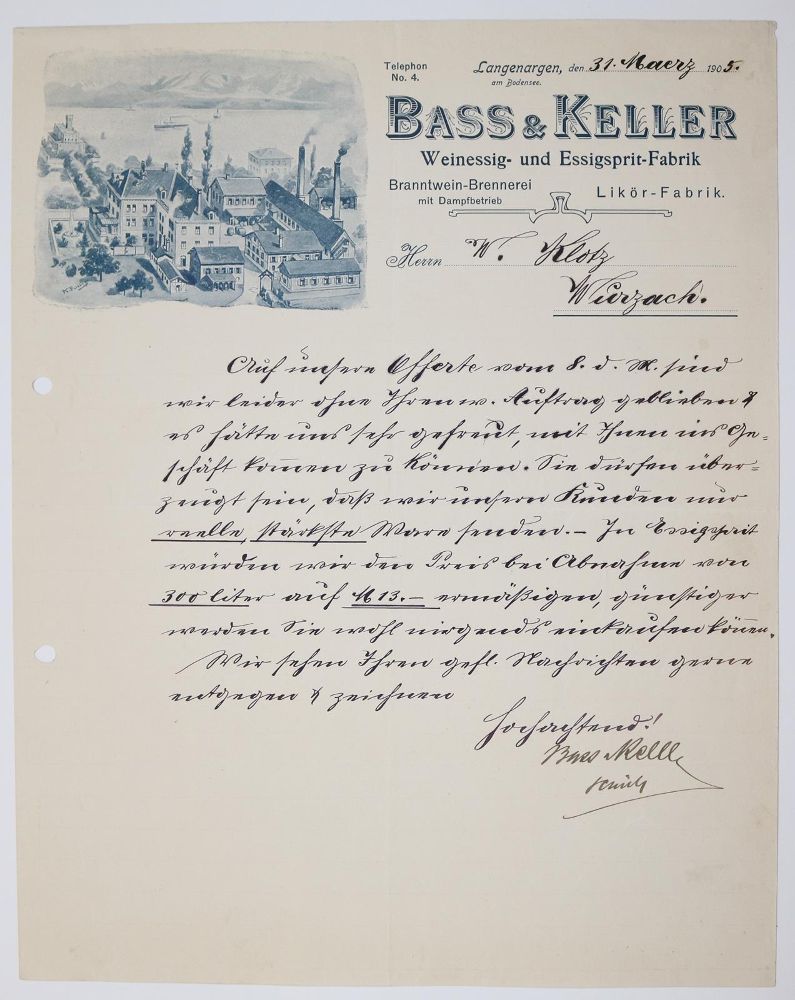 Telephon
No. 4.
Langenargen, den 31. Maerz 1905.
am Bodensee.
BASS & KELLER
Weinessig- und Essigsprit-Fabrik
Branntwein-Brennerei
mit Dampfbetrieb
Likör-Fabrik.
Herrn W. Klotz
Wurzach.
Auf unsere Offerte vom 8. d. M. sind
wir leider ohne Ihren w. Auftrag geblieben &
es hätte uns sehr gefreut, mit Ihnen ins Ge-
schäft kommen zu können. Sie dürfen über-
zeugt sein, daß wir unsern Kunden nur
reelle, stärkste Ware senden. – In Essigsprit
würden wir den Preis bei Abnahme von
300 liter auf M 13.– ermäßigen, günstiger
werden Sie wohl nirgends einkaufen können.
Wir sehen Ihren gefl. Nachrichten gerne
entgegen & zeichnen
Hochachtend!
Bass & Keller